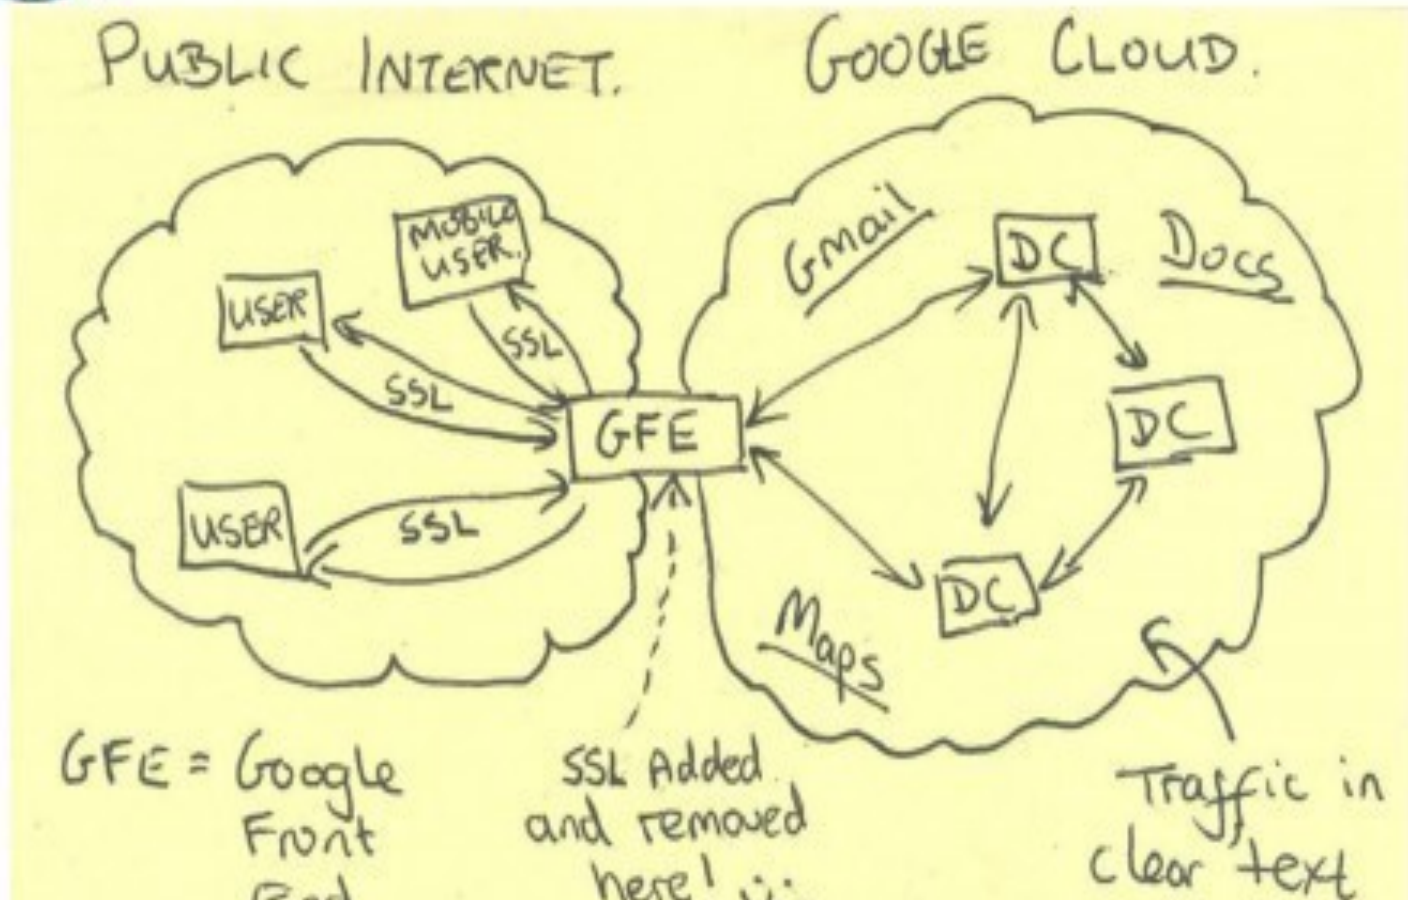 PUBLIC INTERNET.
GOOGLE CLOUD.
MOBILE
USER.
USER
SSL
SSL
USER
SSL
GFE
Gmail
DC
Docs
DC
DC
Maps
GFE = Google
Front
End
SSL Added
and removed
here! :)
Traffic in
clear text